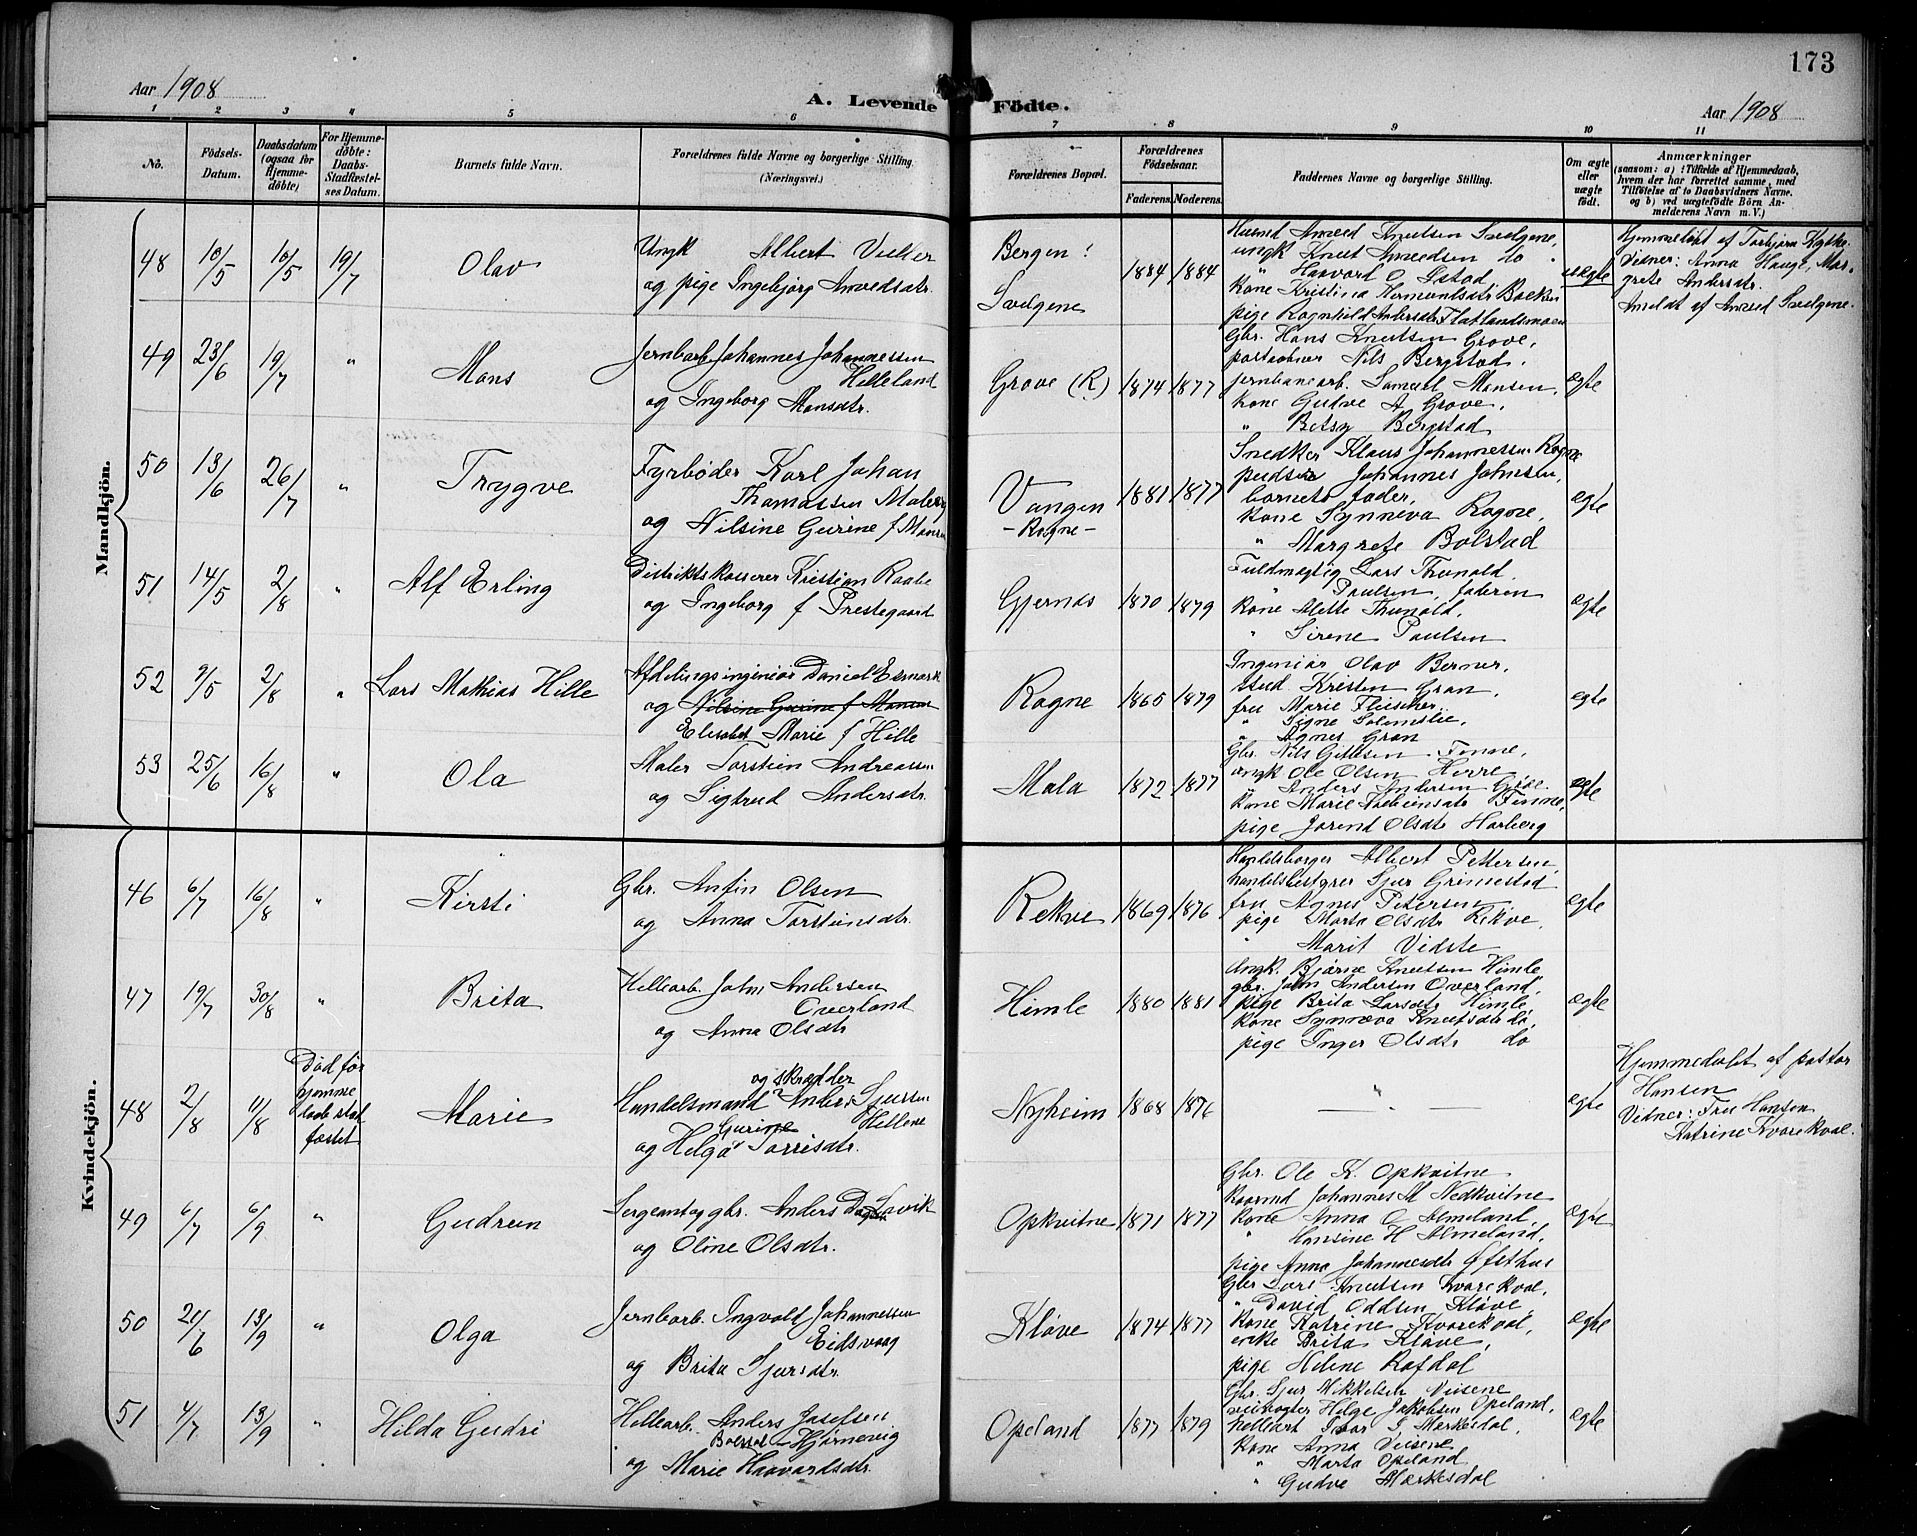 173
Aar 1908
A. Levende Födte.
Aar 1908
1 2 3 4 5 6 7 8 9 10 11
No.
Födsels-Datum.
Daabsdatum (ogsaa for Hjemme-döbte)
For Hjemme-döbte: Daabs-Stadfæstel-ses Datum.
Barnets fulde Navn.
Forældrenes fulde Navne og borgerlige Stilling. (Næringsvei.)
Forældrenes Bopæl.
Forældrenes Födselsaar.
Faderens. Moderens.
Faddernes Navne og borgerlige Stilling.
Om ægte eller uægte födt.
Anmærkninger
(saasom: a) i Tilfælde af Hjemmedaab,
hvem der har forrettet samme, med
Tilföielse af to Daabsvidners Navne.
og b) ved uægtefödte Börn An-
melderens Navn m. V.)
Mandkjön.
48 10/5 10/5 19/7 Olav
Ungk Albert
og pige Ingebjørg Amvedsdtr.
Bergen :
Svelgene
1884 1884
Knutsen Svelgene,
ungk Knut do
" Haavard O
kone Kristina
pige Ragnhild Andersdtr Flatlandsmoen
uægte
Hjemmedøbt af Torbjørn
Vidner: Anna Hauge, Mar-
grete Andersdtr.
Anmeldt af Svelgene.
49 23/6 19/7 " Mons
Jernbarb. Johannes Johannessen
Helleland
og Ingeborg Monsdtr.
Grove (R) 1874 1877
Gbr. Hans Knutsen Grove,
postaabner Nils Bergstad,
jernbanearb. Samuel Monsen,
kone Gudve A Grove,
" Betsy Bergstad
ægte
50 13/6 26/7 " Trygve
Fyrbøder Karl Johan
Thomassen
og Nilsine Gurine f Monsen
Vangen
- Rogne -
1881 1877
Snedker Klaus Johannessen Rogne
pudser Johannes Johnsen,
barnets fader,
kone Synneva Rogne,
" Margrete Bolstad
ægte
51 14/5 2/8 " Alf Erling
Distriktskasserer Kristian Raabe
og Ingeborg f Prestegaard
Gjernes 1870 1879
Fuldmægtig Lars Thunold,
" Paulsen, faderen
kone Mette Thunold,
" Sirene Paulsen
ægte
52 9/5 2/8 " Lars Mathias Hille
Afdelingsingeniør Daniel
og Nilsine Gurine f Monsen
Elisabet Marie f Hille
Rogne 1865 1879
Ingeniør Olav Berner,
stud. Kristen Gran,
fru Marie Fleischer,
" Signe
" Agnes Gran
ægte
53 25/6 16/8 " Ola
Maler Torstein Andreassen
og Sigtrud Andersdtr.
Mala 1872 1877
Gbr. Nils Gittlesen Finne,
ungk Ole Olsen
" Anders Andersen
kone Marie Finne,
pige Jorend Olsdtr
ægte
Kvindekjön.
46 6/7 16/8 " Kirsti
Gbr. Anfin Olsen
og Anna Torsteinsdtr.
Rekve 1869 1876
Handelsborger Albert Pettersen,
handelsbestyrer Sjur Grimestad
fru Agnes Petersen
pige Marta Olsdtr Rekve,
" Marit Vidste
ægte
47 19/7 30/8 " Brita
Hellearb. John Andersen
Overland
og Anna Olsdtr
Himle 1880 1881
Ungk. Bjørne Knutsen Himle
gbr. John Andersen Overland,
pige Brita Larsdtr Himle,
kone Synneva Knutsdtr do,
pige Inger Olsdtr do
ægte
48 2/8 11/8 Død før hjemme daab stad fæstet
Marie
og skrædder
Handelsmand Sjursen
Hellene
Gurine
og Helga Torrisdtr.
Nyheim 1868 1876
— " —
ægte
Hjemmedøbt af pastor
Hansen
Vidner: Fru Hansen
Katrine Kvarekval.
49 6/7 6/9 " Gudrun
Sergeant og gbr. Anders Lavik
og Oline Olsdtr.
Opkvitne 1871 1877
Gbr. Ole K. Opkvitne
Johannes M Nedkvitne
kone Anna O Almeland,
" Hansine H Almeland,
pige Anna Johannesdtr Øfsthus
ægte
50 21/6 13/9 " Olga
Jernbarb. Ingvald Johannessen
Eidsvaag
og Brita Sjursdtr.
Kløve 1874 1877
Gbr Lars Knutsen Kvarekval,
" David Oddsen Kløve,
kone Katrine Kvarekval,
enke Brita Kløve,
pige Helene Rafdal
ægte
51 4/7 13/9 " Hilda Gudri
Hellearb. Anders Josefsen
Bolstad - Hjørnevig
og Marie Haavardsdtr.
Opeland 1877 1879
Gbr. Sjur Mikkelsen Vinsene
Helge Jakobsen Opeland,
hellearb Ivar S. Mørkesdal,
kone Anna Vinsene
" Marta Opeland
" Gudve Mørkesdal
ægte